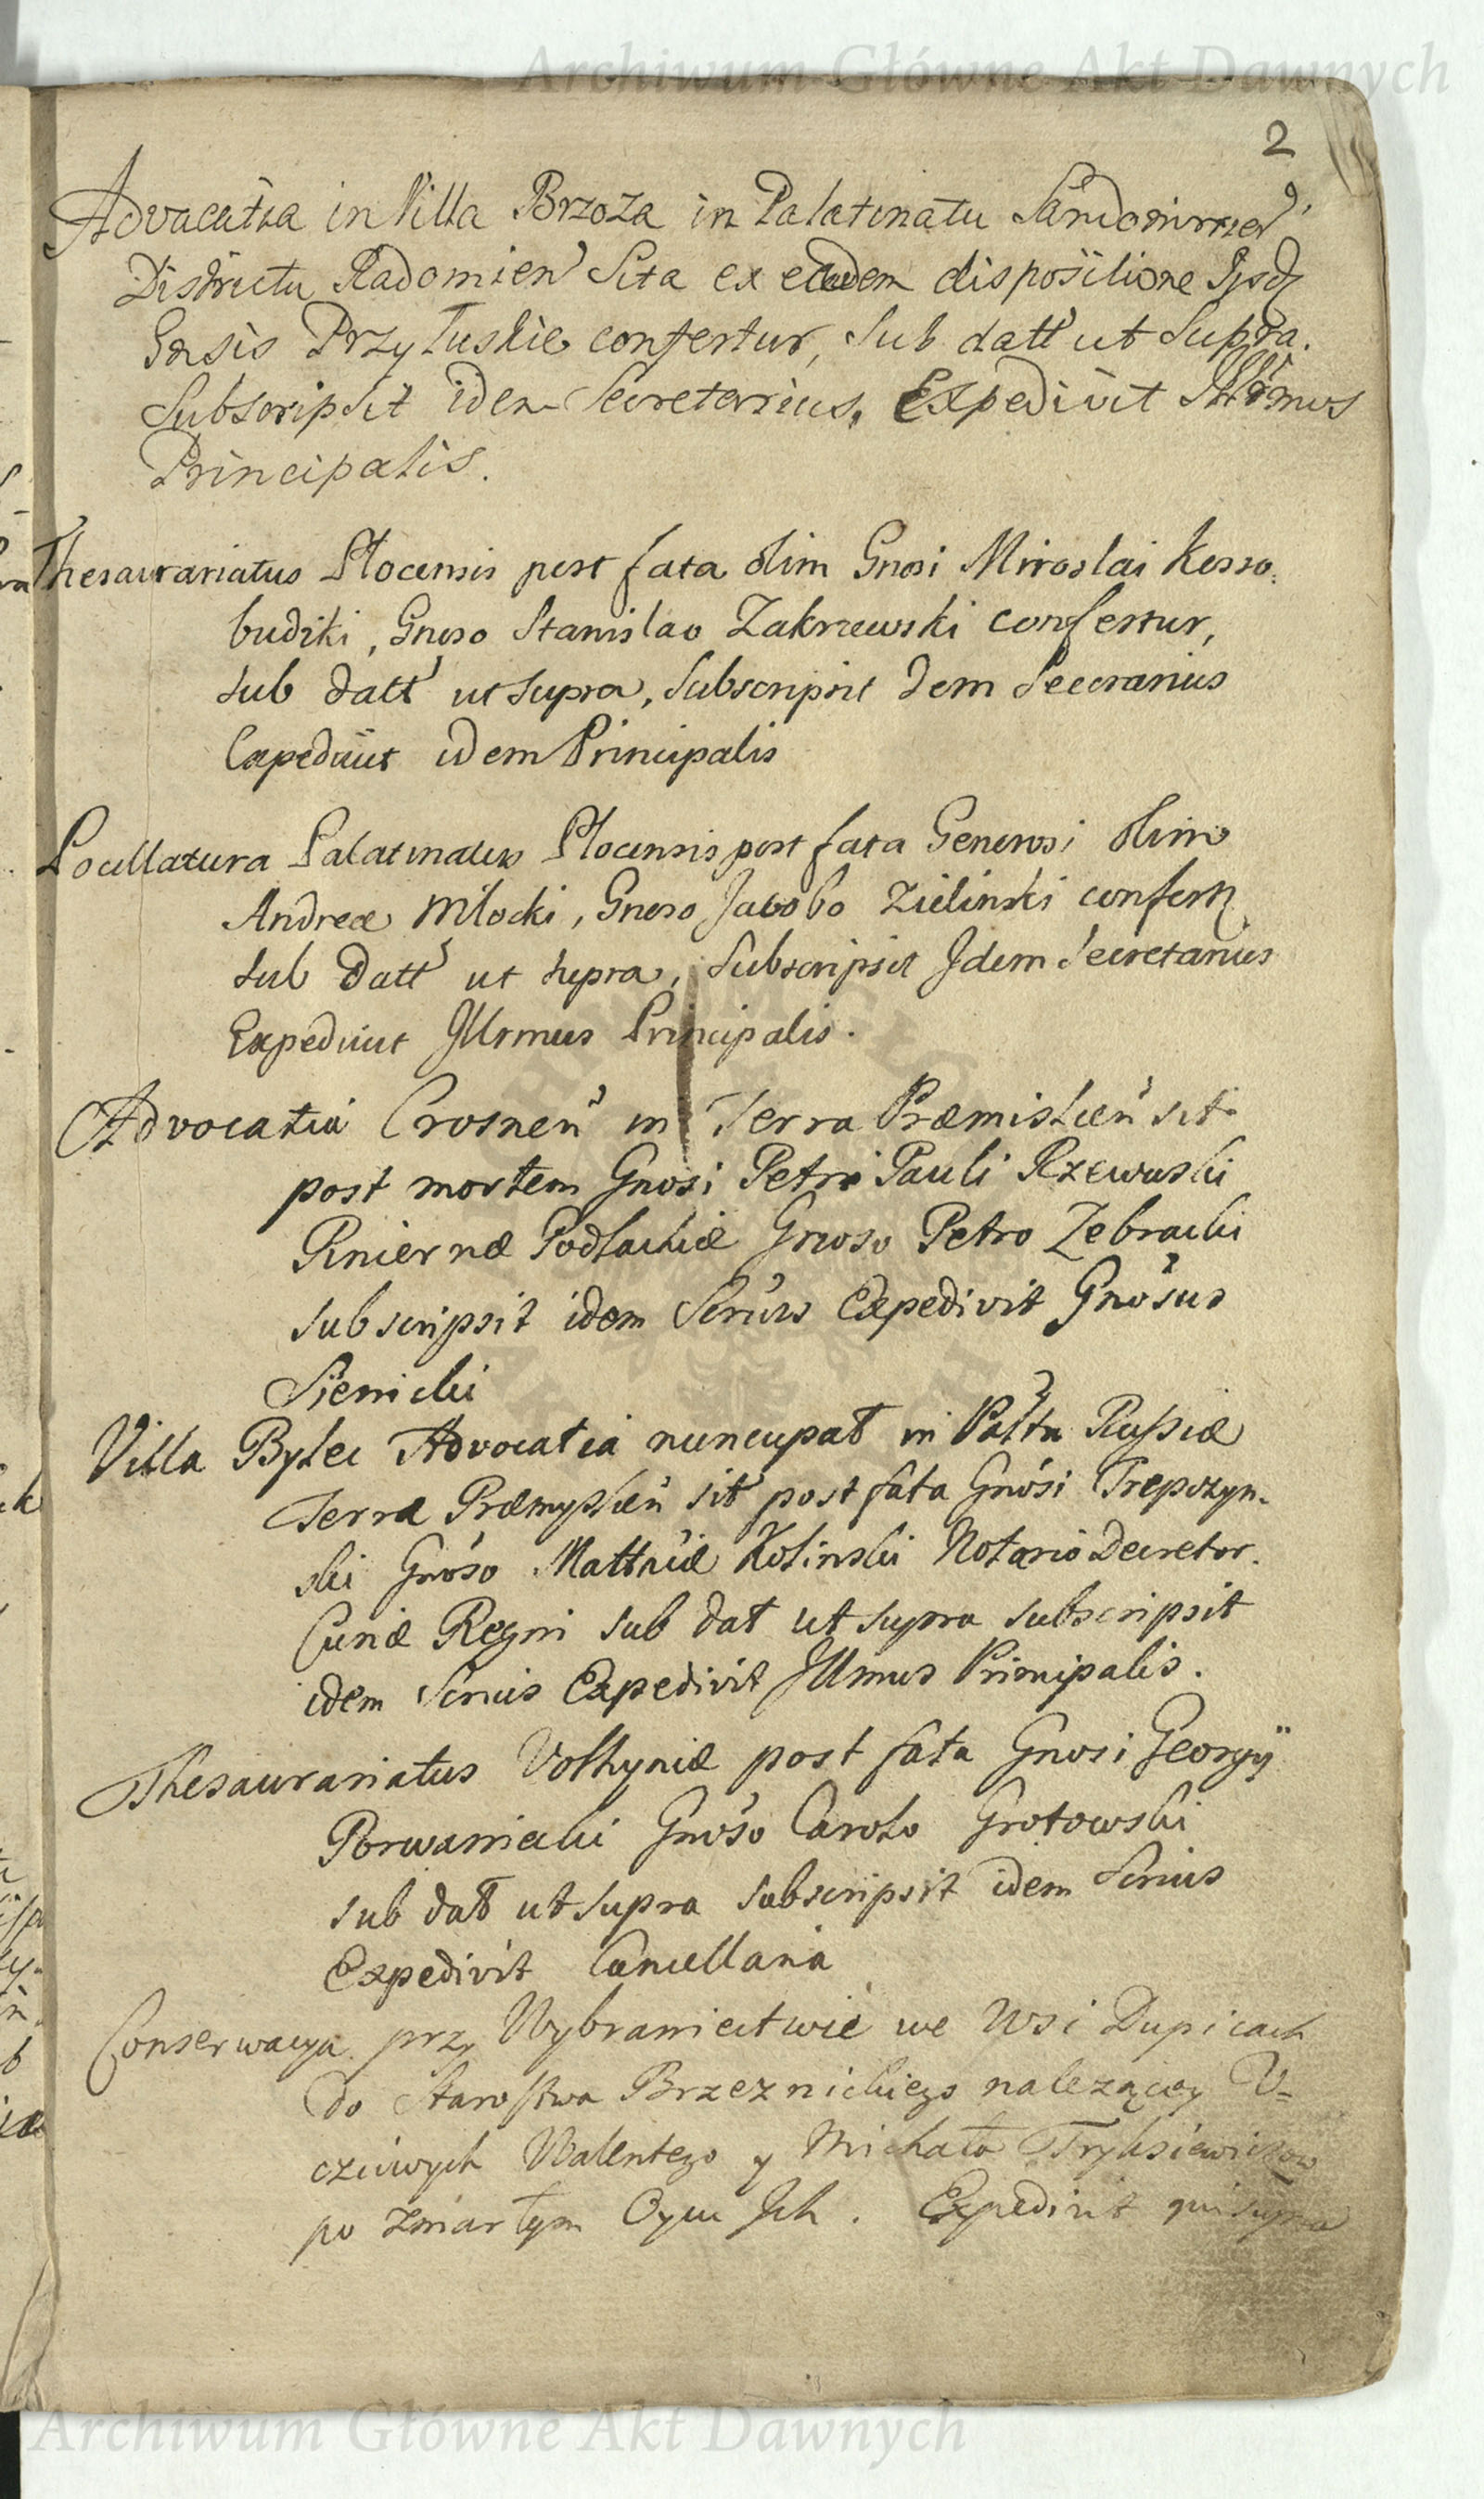 Archiwum Główne Akt Dawnych
2
Advocatia in Villa Brzoza in Palatinatu Sandomirien
Districtu Radomien Sita ex eadem dispositione Ijsdē
Gnsis Przyłuskie confertur, Sub datt ut Supra.
Subscripsit idem Secretarius. Expedivit Illrmus
Principalis.
Thesaurariatus Plocensis post fata olim Gnosi Miroslai Kosso-
budzki, Gnoso Stanislao Zakrzewski confertur,
sub datt ut supra, Subscripsit Idem Secetarius
Expediuit idem Principalis
Pocillatura Palatinatus Plocensis post fata Generosi olim
Andreæ Młocki, Gnoso Jacobo Zielinski confertr
sub datt ut supra, Subscripsit Idem Secretarius
Expediuit Illrmus Principalis.
Advocatia Crosnen in Terra Præmislien sit
post mortem Gnosi Petri Pauli Rzewuski
Pincernæ Podlachiæ Gnoso Petro Zebracki
subscripsit idem Scrius Expedivit Gnosus
Sienicki
Villa Bylei Advocatia nuncupat in Palttu Russiæ
Terræ Præmyslien sit post fata Gnosi Trepozyn-
ski Gnoso Matthiæ Kolinski Notario Decretor.
Curiæ Regni sub dat ut supra subscripsit
idem Scrius Expedivit Illmus Principalis.
Thesaurariatus Volhyniæ post fata Gnosi Georgij
Porwaniecki Gnoso Carolo Grotowski
sub dat ut supra subscripsit idem Scrius
Expedivit Cancellaria
Conserwacya przy Wybraniectwie we Wsi Dupicach
do Starostwa Brzeznickiego nalezącey U=
czciwych Walentego y Michała Tryksiewiczow
po zmarłym Oycu Ich. Expedivit qui supra
Archiwum Główne Akt Dawnych